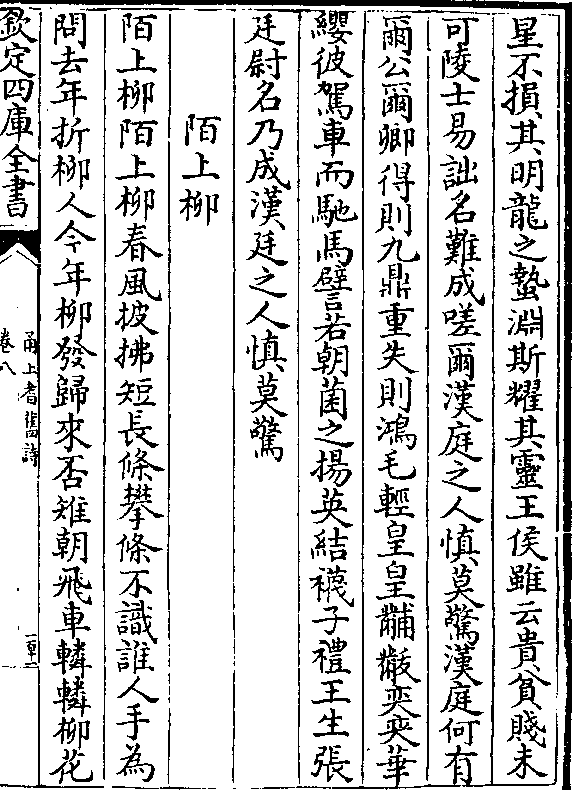 星不損其明龍之蟄淵斯耀其靈王侯雖云貴貧賤未
可陵士易詘名難成嗟爾漢庭之人慎莫驚漢庭何有
爾公爾卿得則九鼎重失則鴻毛輕皇皇黼黻奕奕華
纓彼駕車而馳馬譬若朝菌之揚英結襪子禮王生張
廷尉名乃成漢廷之人慎莫驚
陌上柳
陌上柳陌上柳春風披拂短長條攀條不識誰人手為
問去年折柳人今年柳發歸來否雉朝飛車轔轔柳花
欽定四庫全書
甬上耆舊詩
卷八